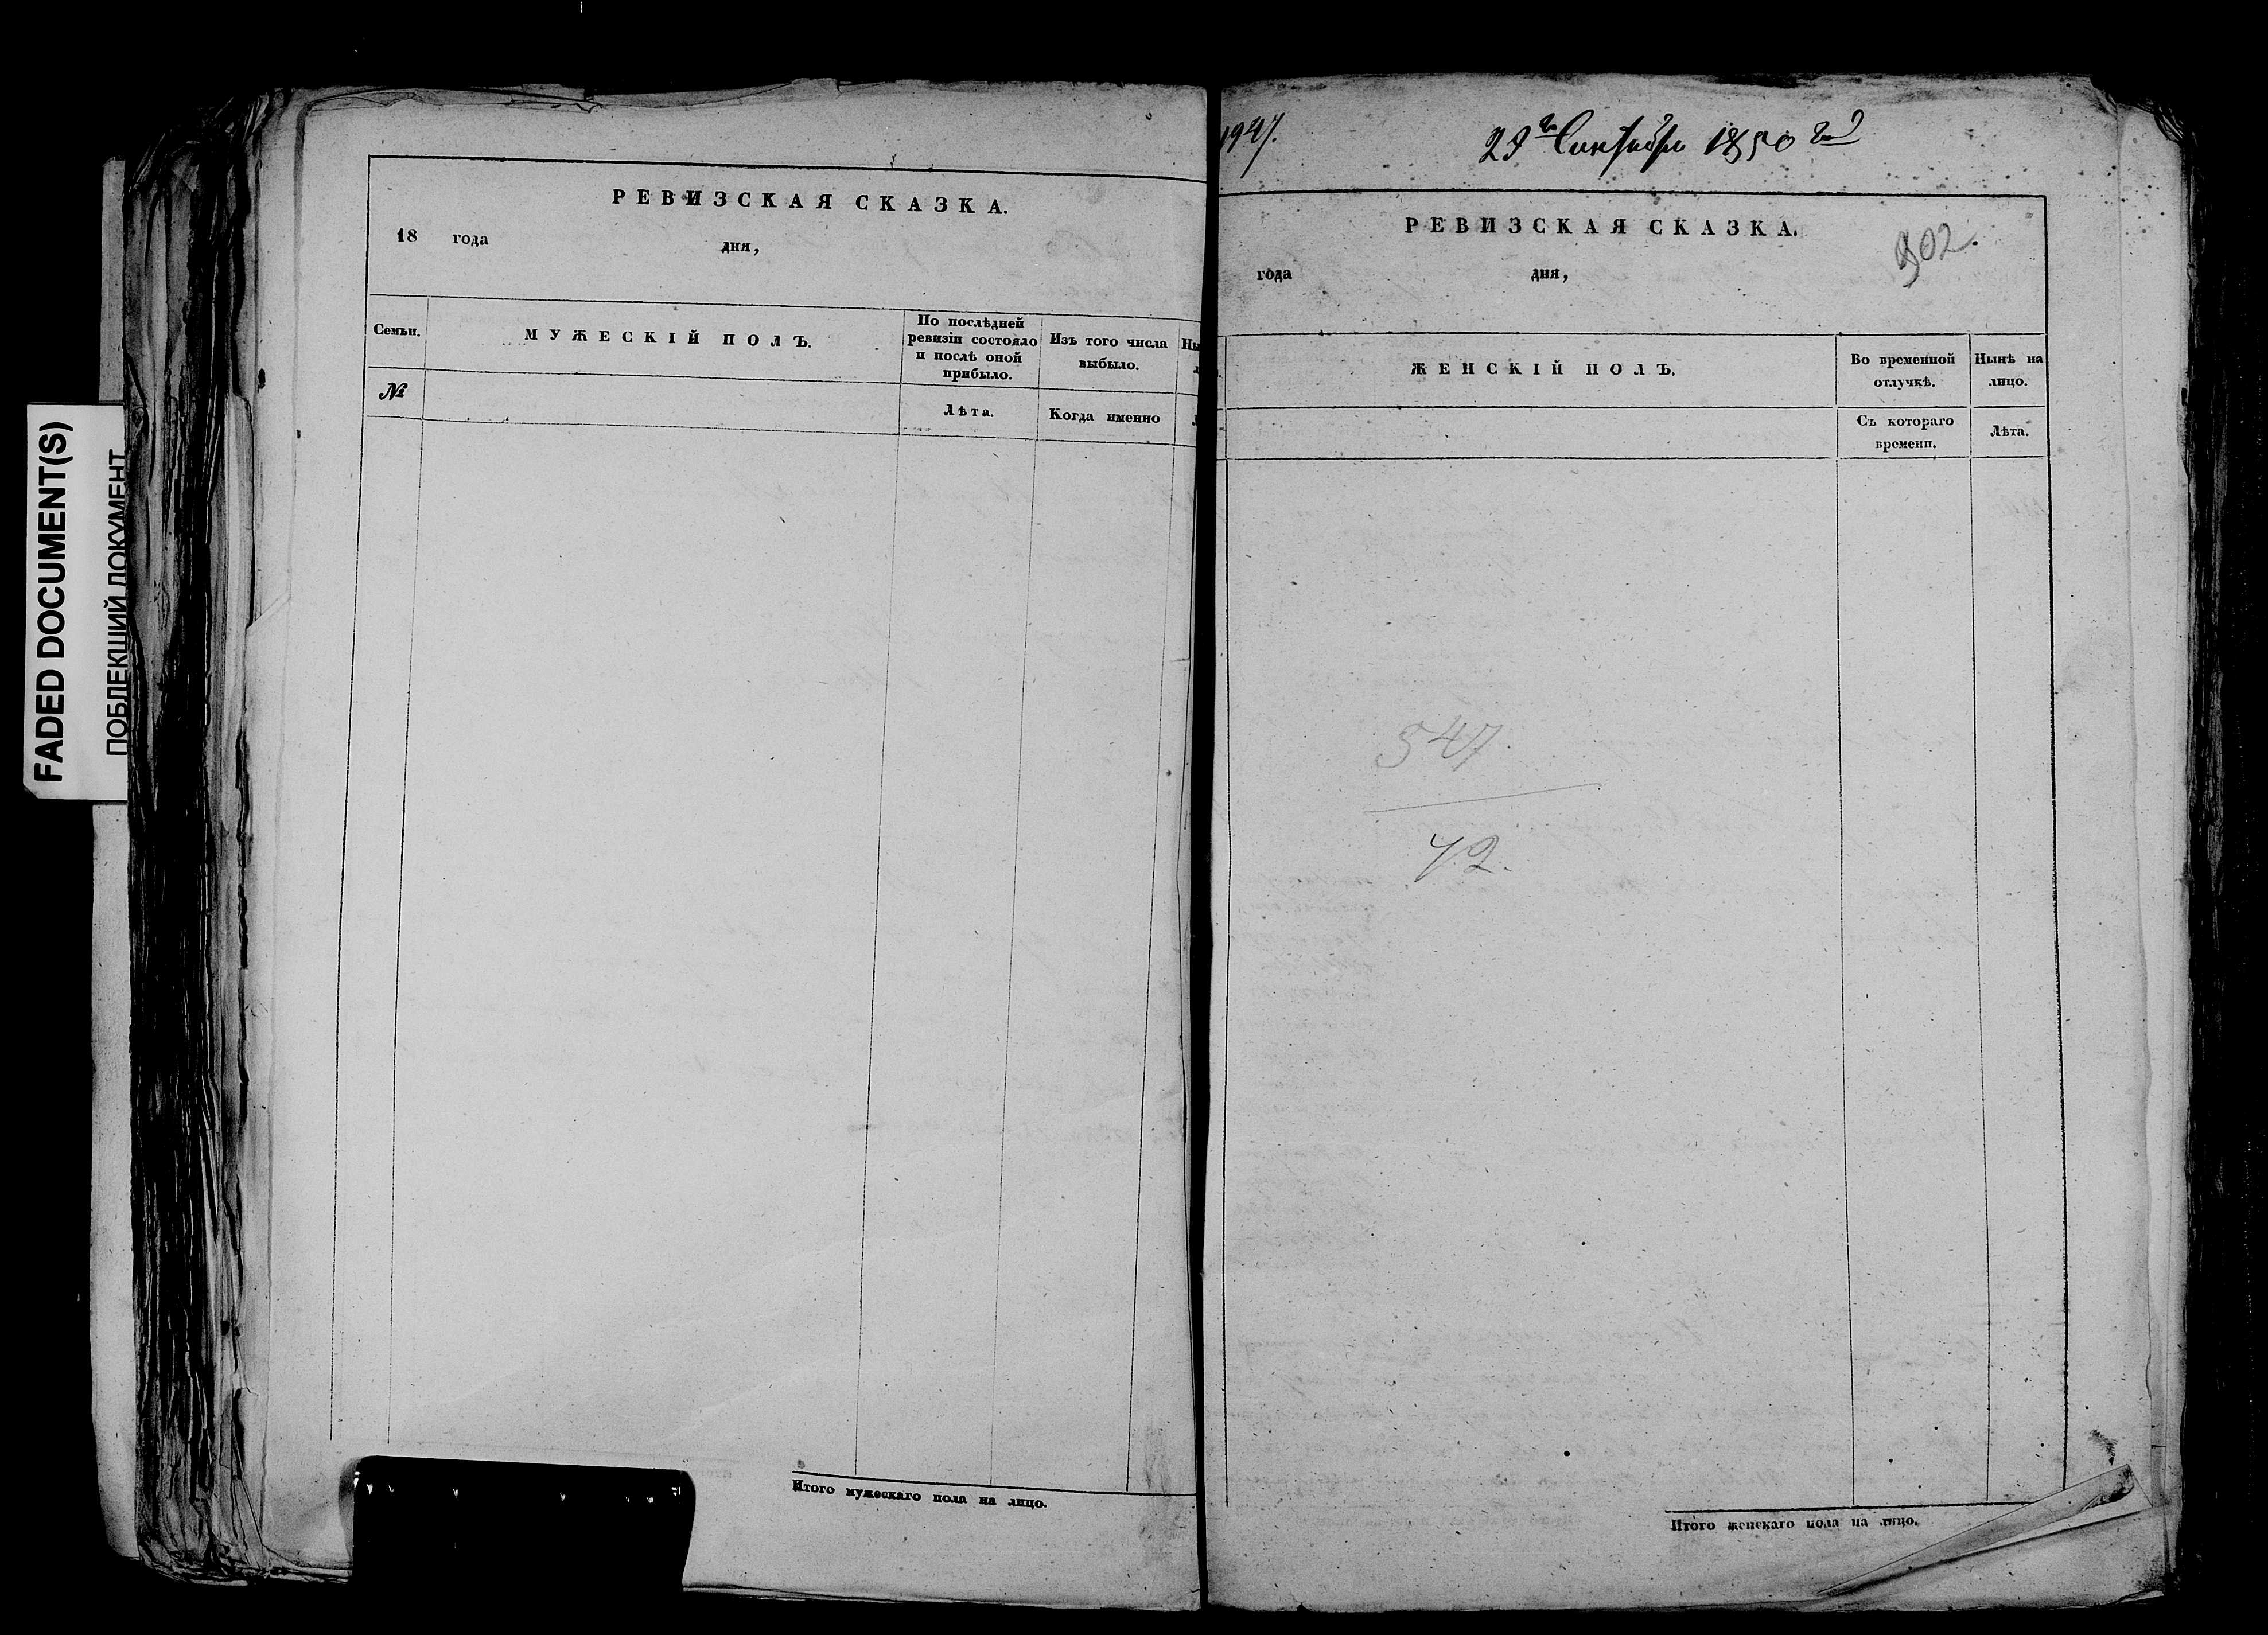 FADED DOCUMENT(S)
ПОБЛЕКШИЙ ДОКУМЕНТ
РЕВИЗСКАЯ СКАЗКА.
18 года дня,
Семьи.
МУЖЕСКІЙ ПОЛЪ.
По послѣдней
ревизіи состояло
и послѣ оной
прибыло.
Изъ того числа
выбыло.
Ны
№
Лѣта.
Когда именно
Итого мужескаго пола на лицо.
1947.
29го Сентября 1850 год
РЕВИЗСКАЯ СКАЗКА.
302.
года дня,
ЖЕНСКІЙ ПОЛЪ.
Во временной
отлучкѣ.
Нынѣ на
лицо.
Съ котораго
времени.
Лѣта.
547.
72.
Итого женскаго пола на лицо.